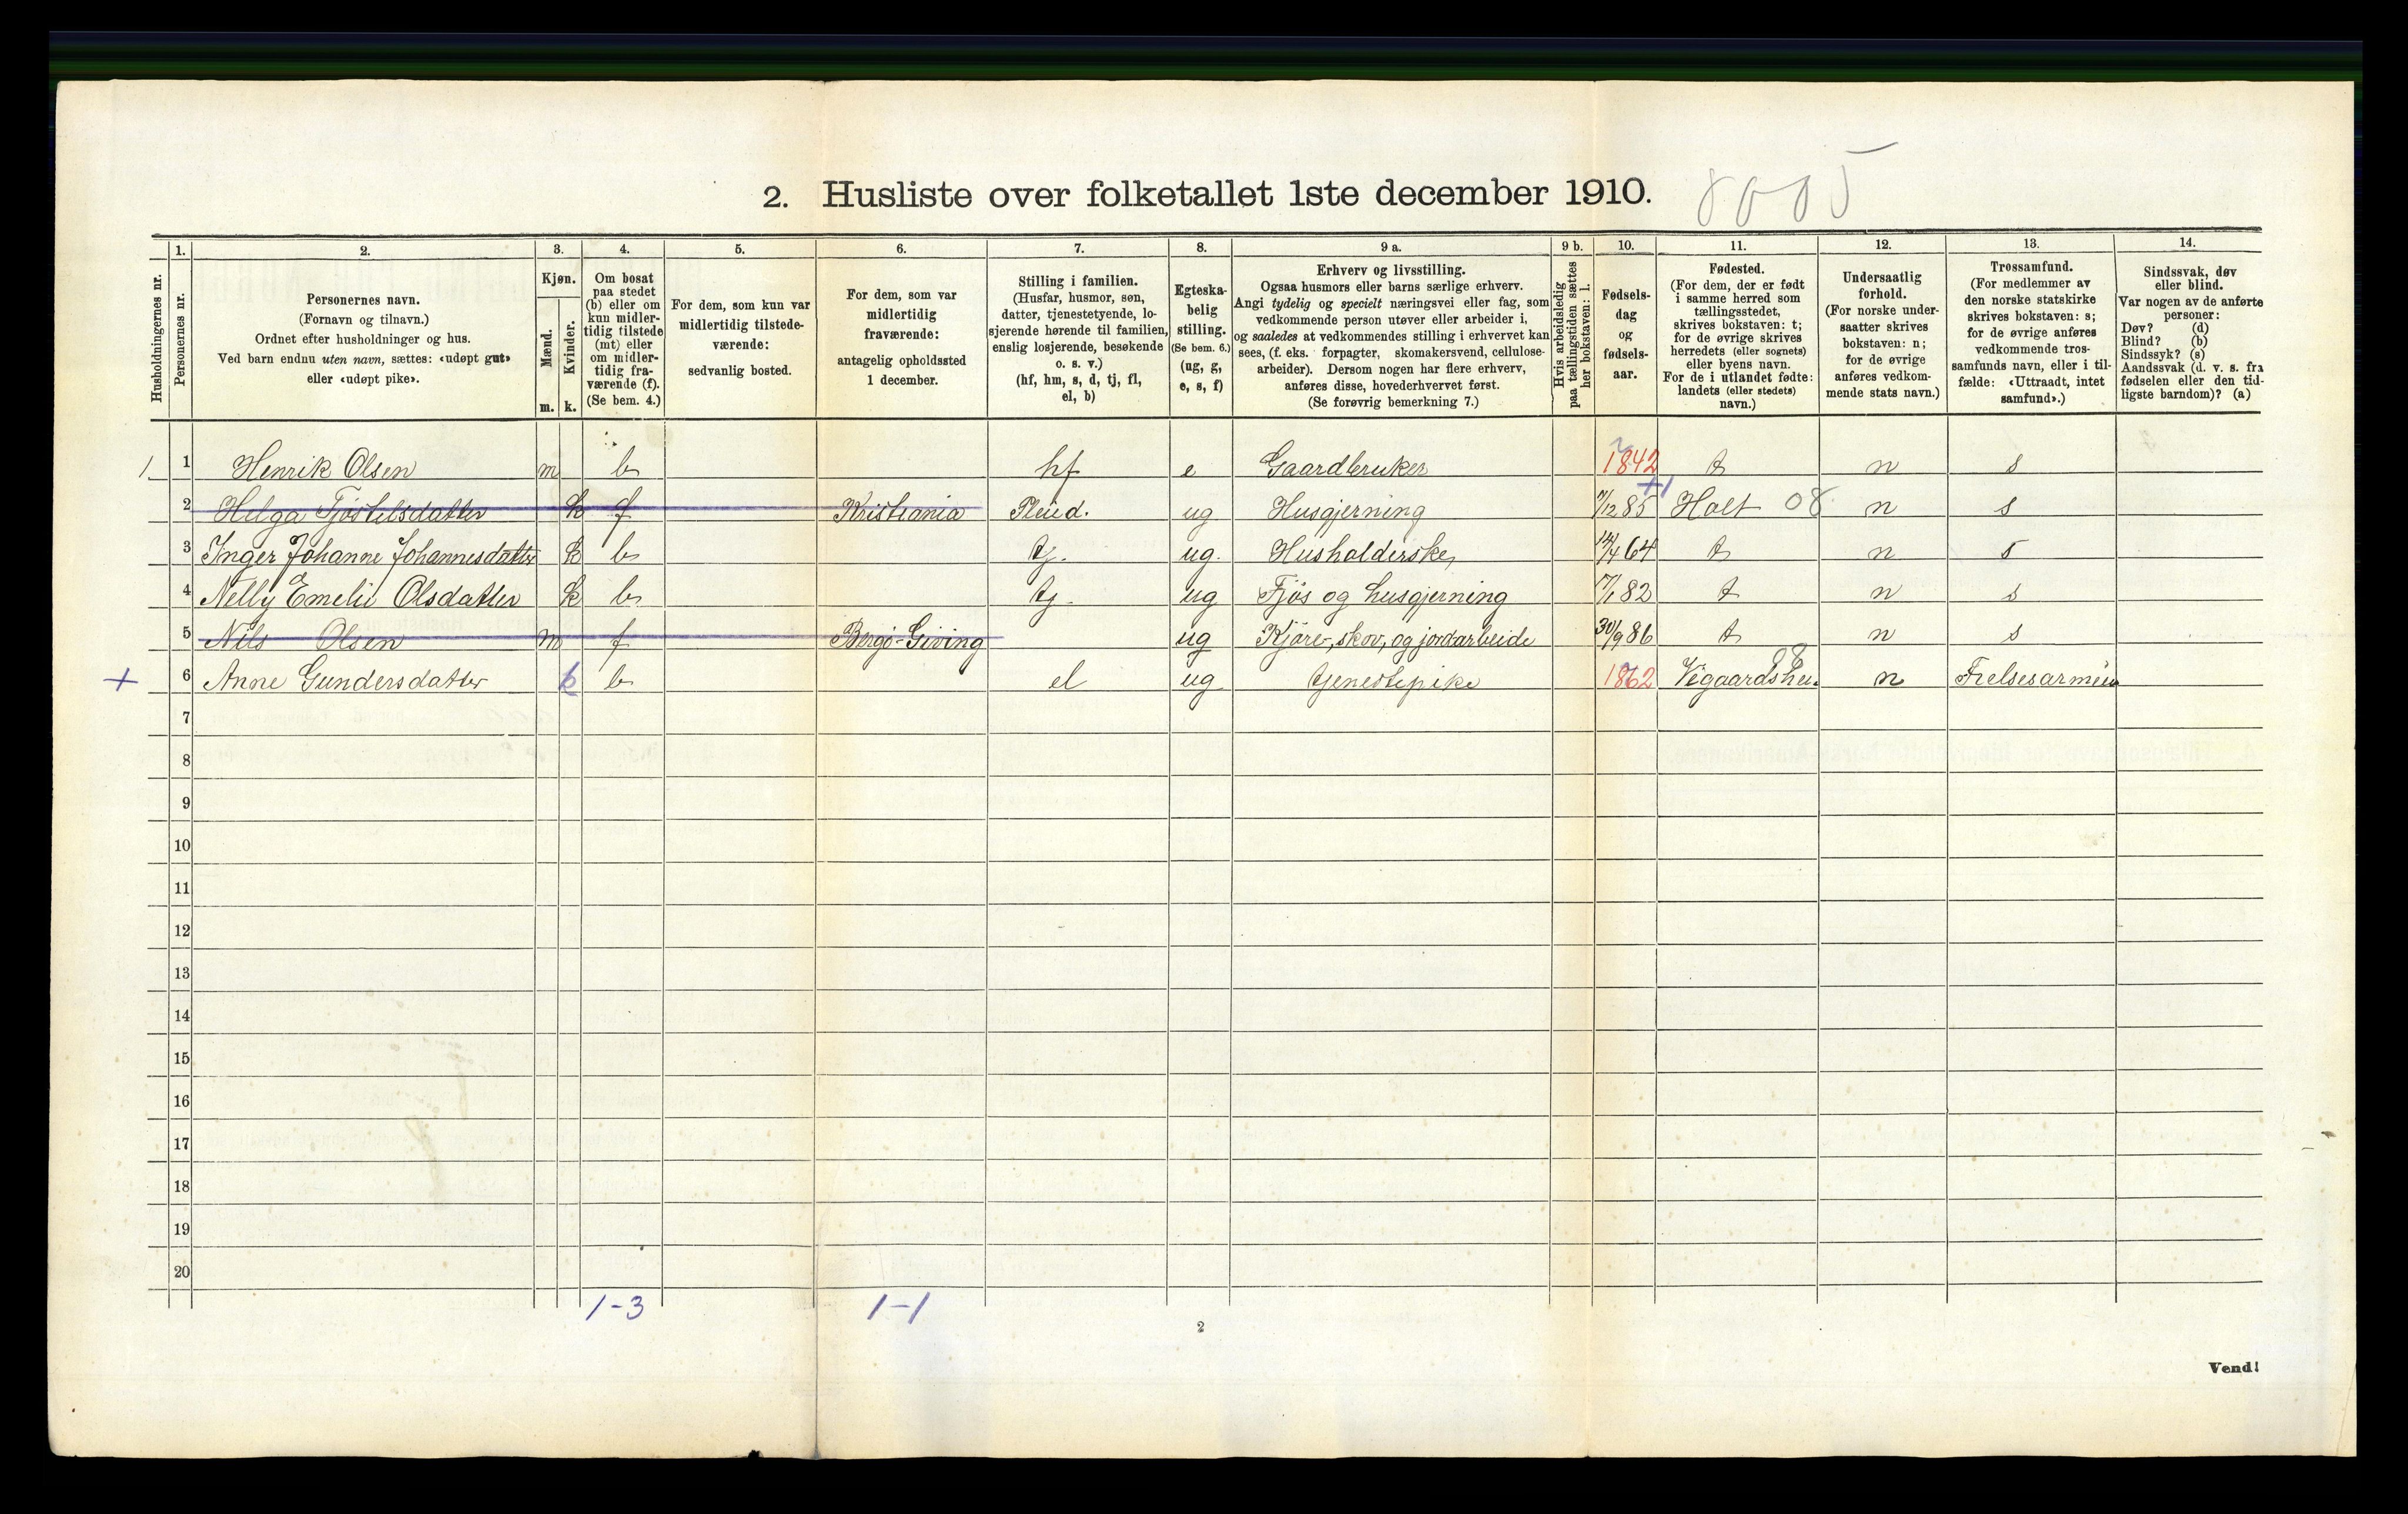 2. Husliste over folketallet 1ste december 1910.
Husholdningernes nr.
1.
Personernes nr.
2.
Personernes navn.
(Fornavn og tilnavn.)
Ordnet efter husholdninger og hus.
Ved barn endnu uten navn, sættes: «udøpt gut»
eller «udøpt pike».
3.
Kjøn.
Mænd.
Kvinder.
m. k.
4.
Om bosat
paa stedet
(b) eller om
kun midler-
tidig tilstede
(mt) eller
om midler-
tidig fra-
værende (f).
(Se bem. 4.)
5.
For dem, som kun var
midlertidig tilstede-
værende:
sedvanlig bosted.
6.
For dem, som var
midlertidig
fraværende:
antagelig opholdssted
1 december.
7.
Stilling i familien.
(Husfar, husmor, søn,
datter, tjenestetyende, lo-
sjerende hørende til familien,
enslig losjerende, besøkende
o. s. v.)
(hf, hm, s, d, tj, fl,
el, b)
8.
Egteska-
belig
stilling.
(Se bem. 6.)
(ug, g,
e, s, f)
9 a.
Erhverv og livsstilling.
Ogsaa husmors eller barns særlige erhverv.
Angi tydelig og specielt næringsvei eller fag, som
vedkommende person utøver eller arbeider i,
og saaledes at vedkommendes stilling i erhvervet kan
sees, (f. eks. forpagter, skomakersvend, cellulose-
arbeider). Dersom nogen har flere erhverv,
anføres disse, hovederhvervet først.
(Se forøvrig bemerkning 7.)
9 b.
Hvis arbeidsledig
paa tællingstiden sættes
her bokstaven: l.
10.
Fødsels-
dag
og
fødsels-
aar.
11.
Fødested.
(For dem, der er født
i samme herred som
tællingsstedet,
skrives bokstaven: t;
for de øvrige skrives
herredets (eller sognets)
eller byens navn.
For de i utlandet fødte:
landets (eller stedets)
navn.)
12.
Undersaatlig
forhold.
(For norske under-
saatter skrives
bokstaven: n;
for de øvrige
anføres vedkom-
mende stats navn.)
13.
Trossamfund.
(For medlemmer av
den norske statskirke
skrives bokstaven: s;
for de øvrige anføres
vedkommende tros-
samfunds navn, eller i til-
fælde: «Uttraadt, intet
samfund».)
14.
Sindssvak, døv
eller blind.
Var nogen av de anførte
personer:
Døv? (d)
Blind? (b)
Sindssyk? (s)
Aandssvak (d. v. s. fra
fødselen eller den tid-
ligste barndom)? (a)
1 1 Henrik Olsen m b hf e Gaardbruker 1842 t n s
2 Helga Tjøstelsdatter k f Kristiania Pleied. ug Husgjerning 7/12 85 Holt 08 n s
3 Inger Johanne Johannesdatter k b tj. ug. Husholderske 14/4 64 t n s
4 Nelly Emelie Olsdatter k b tj. ug Fjøs og husgjerning 17/1 82 t n s
5 Nils Olsen m f Bergø-Giving ug Kjøre-, skov, og jordarbeide 30/9 86 t n s
+ 6 Anne Gundersdatter k b el ug tjenestepike 1862 Vegaardshei. n Frelsesarmeen
7
8
9
10
11
12
13
14
15
16
17
18
19
20
1-3 1-1
2
Vend!